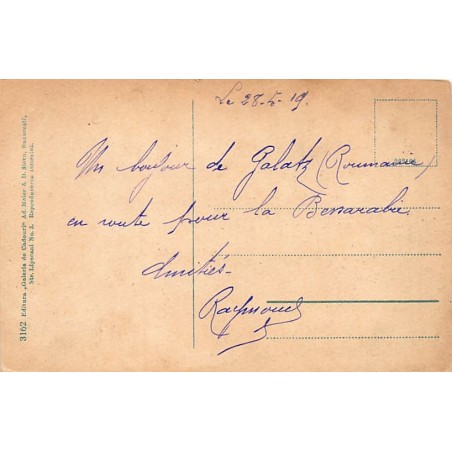 Le 28-5-19.
Un bonjour de Galatz (Roumanie)
en route pour la Bessarabie
Amitiés-
Raymond
3162 Editura „Galeria de Cadouri" Ad. Maier & D. Stern, Bucuresti,
Str. Lipscani No. 2. Reproducerea interzisă.